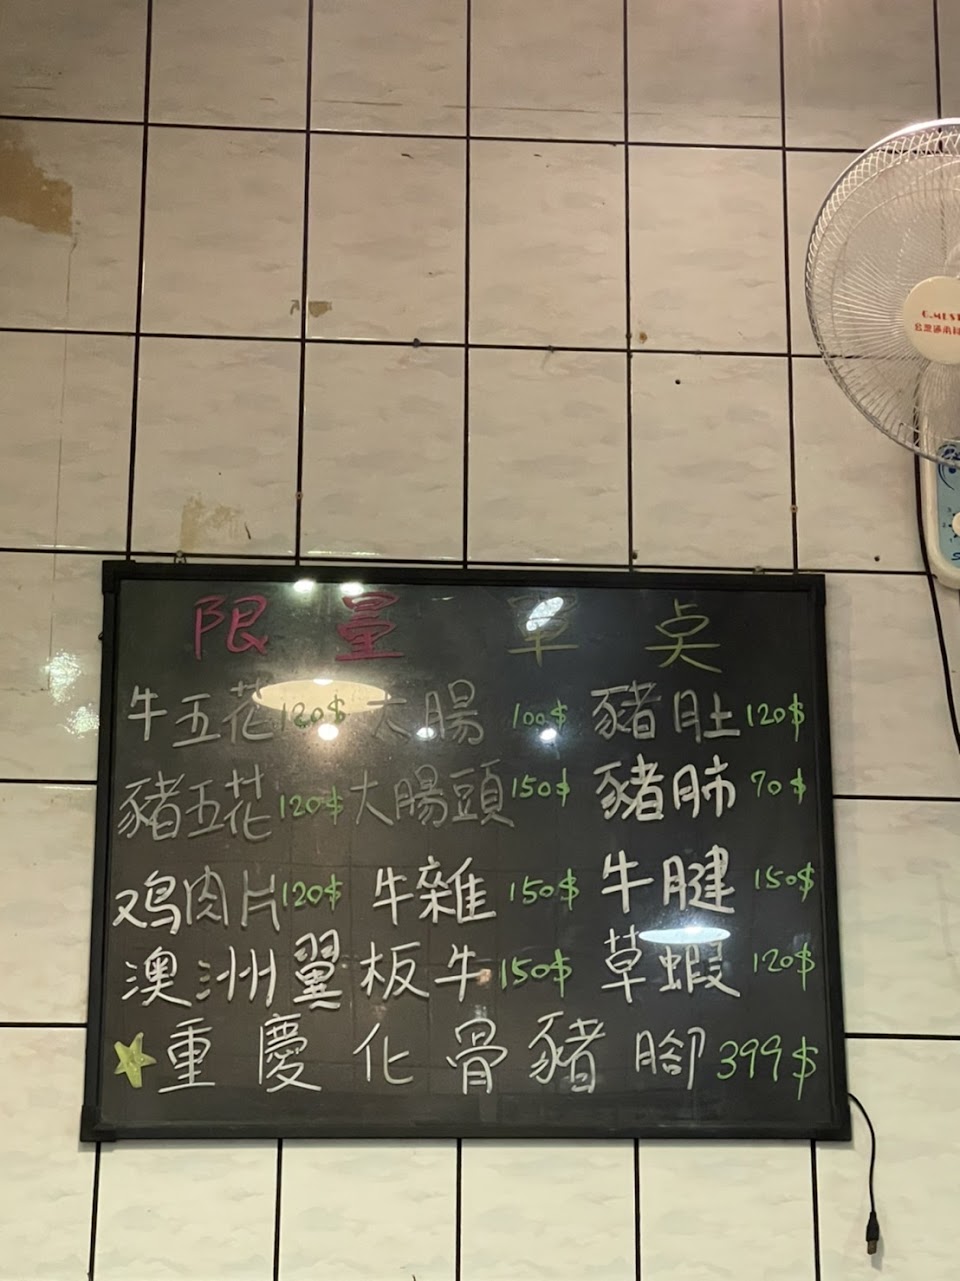 限量單点
牛五花120$ 大腸 100$ 豬肚120$
豬五花120$ 大腸頭150$ 豬肺 70$
鸡肉片120$ 牛雜 150$ 牛腱 150$
澳洲翼板牛150$ 草蝦 120$
重慶化骨豬腳399$